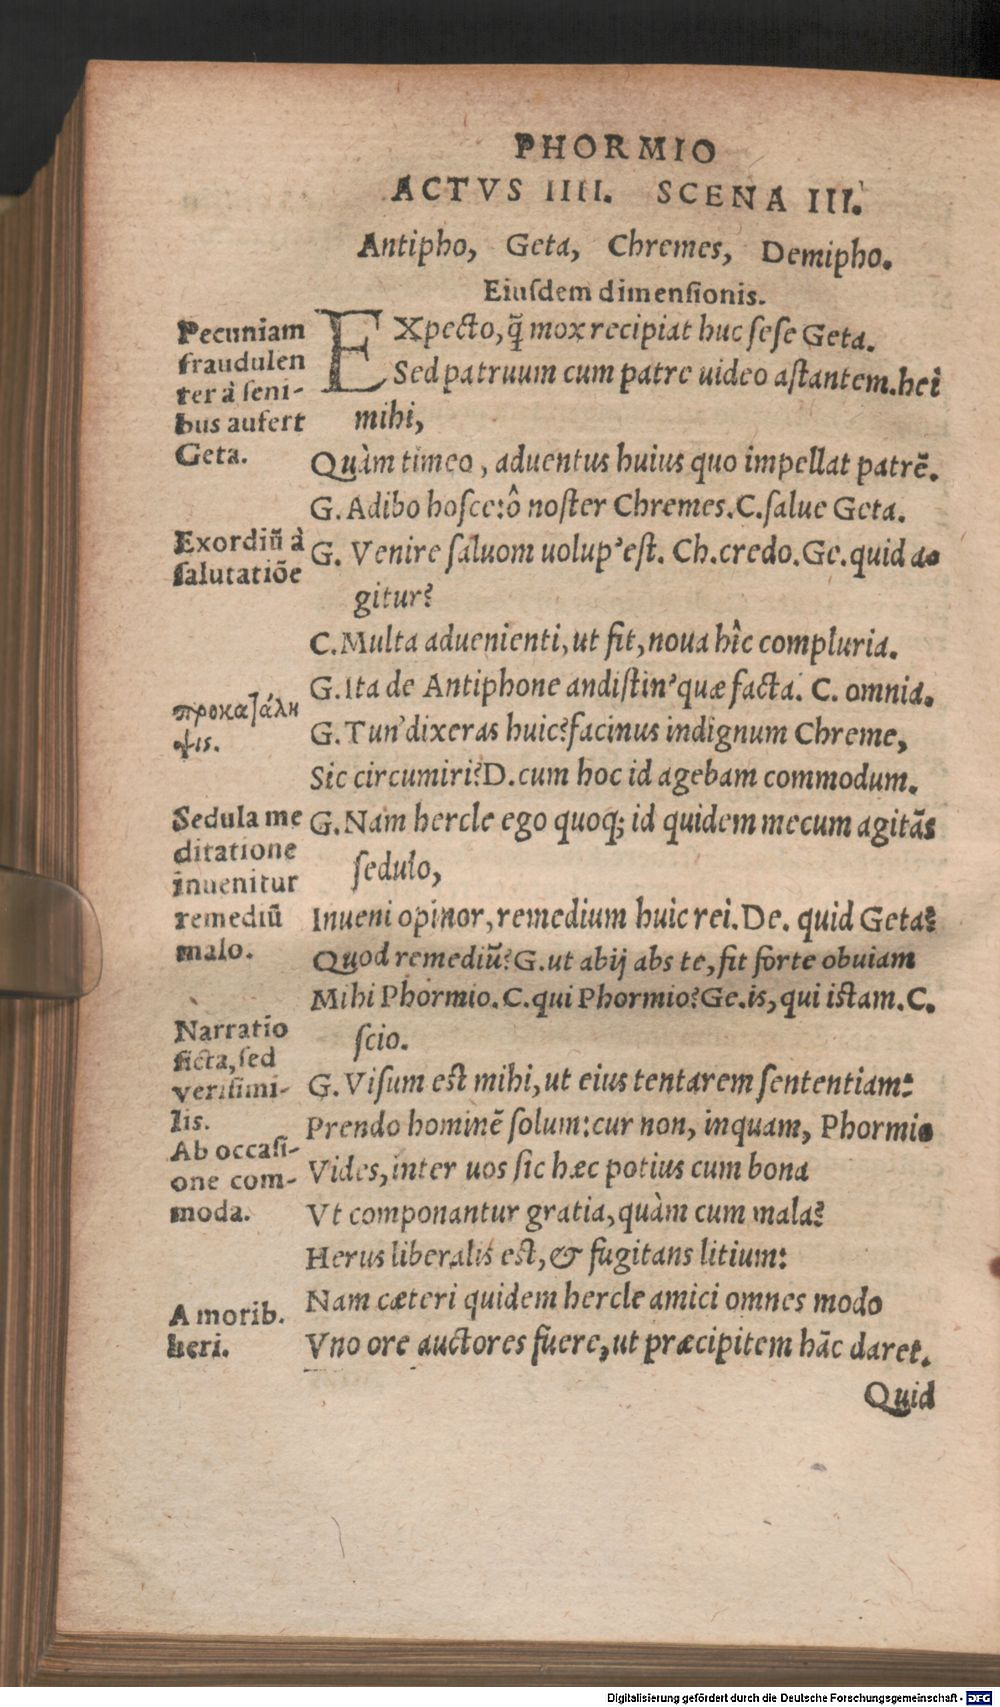 PHORMIO
ACTVS IIII. SCENA III.
Antipho, Geta, Chremes, Demipho.
Eiusdem dimensionis.
Pecuniam
fraudulen
ter à seni-
bus aufert
Geta.
EXpecto, q̃ mox recipiat huc sese Geta.
Sed patruum cum patre uideo astantem. hei
mihi,
Quàm timeo, aduentus huius quo impellat patrẽ.
G. Adibo hosce: ô noster Chremes. C. salue Geta.
Exordiũ à
salutatiõe
G. Venire saluom uolup' est. Ch. credo. Ge. quid a-
gitur?
C. Multa aduenienti, ut fit, noua hîc compluria.
G. Ita de Antiphone andistin' quæ facta. C. omnia.
προκατάλη
ψις.
G. Tun' dixeras huic? facinus indignum Chreme,
Sic circumiri? D. cum hoc id agebam commodum.
Sedula me
ditatione
inuenitur
remediũ
malo.
G. Nam hercle ego quoq; id quidem mecum agitãs
sedulo,
Inueni opinor, remedium huic rei. De. quid Geta?
Quod remediũ? G. ut abij abs te, fit forte obuiam
Mihi Phormio. C. qui Phormio? Ge. is, qui istam. C.
scio.
Narratio
ficta, sed
verisimi-
lis.
G. Visum est mihi, ut eius tentarem sententiam:
Prendo hominẽ solum: cur non, inquam, Phormio
Ab occasi-
one com-
moda.
Vides, inter uos sic hæc potius cum bona
Vt componantur gratia, quàm cum mala?
Herus liberalis est, & fugitans litium:
A morib.
heri.
Nam cæteri quidem hercle amici omnes modo
Vno ore auctores fuere, ut præcipitem hãc daret.
Quid
Digitalisierung gefördert durch die Deutsche Forschungsgemeinschaft - DFG